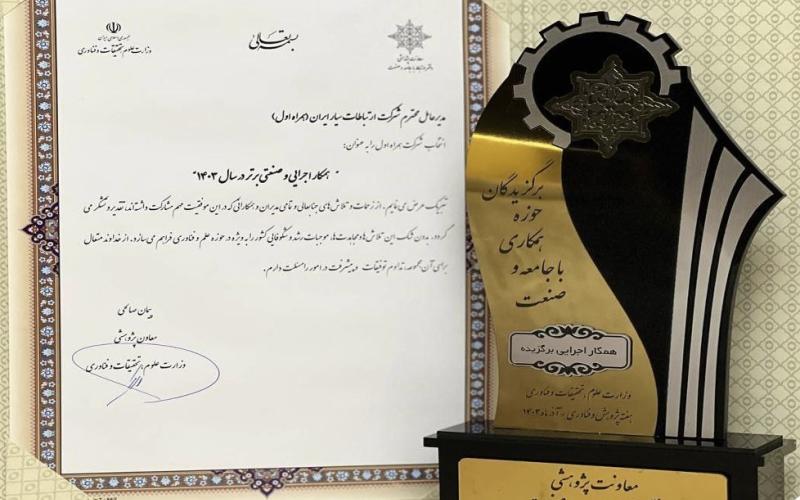 بسمه تعالی
جمهوری اسلامی ایران
وزارت علوم، تحقیقات و فناوری
معاونت پژوهشی
دفتر ارتباط با جامعه و صنعت
مدیرعامل محترم شرکت ارتباطات سیار ایران (همراه اول)
انتخاب شرکت همراه اول را به عنوان:
"همکار اجرایی و صنعتی برتر در سال ۱۴۰۳"
تبریک عرض می‌نمایم. از زحمات و تلاش‌های جنابعالی و تمامی مدیران و همکارانی که در این موفقیت سهم مشارکت داشته‌اند، تقدیر و تشکر می
گردد. بدون شک این تلاش‌ها و مجاهدت‌ها، موجبات رشد و شکوفایی کشور را به ویژه در حوزه علم و فناوری فراهم می سازد. از خداوند متعال
برای آن مجموعه، تداوم توفیقات و پیشرفت در امور را مسئلت دارم.
پیمان صالحی
معاون پژوهشی
وزارت علوم، تحقیقات و فناوری
برگزیدگان
حوزه
همکاری
با جامعه و
صنعت
همکار اجرایی برگزیده
وزارت علوم، تحقیقات و فناوری
هفته پژوهش و فناوری - آذر ماه ۱۴۰۳
معاونت پژوهشی